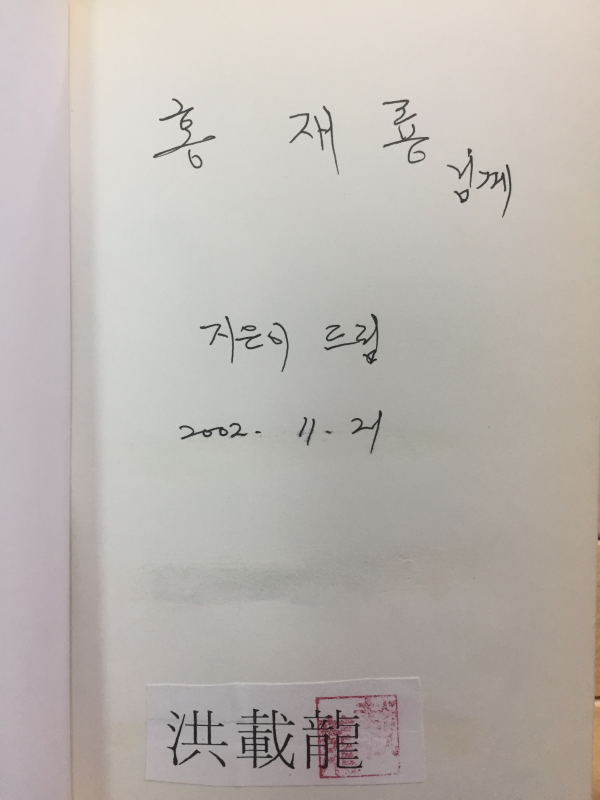 홍 재 룡
님께
지은이 드림
2002. 11. 21
洪載龍